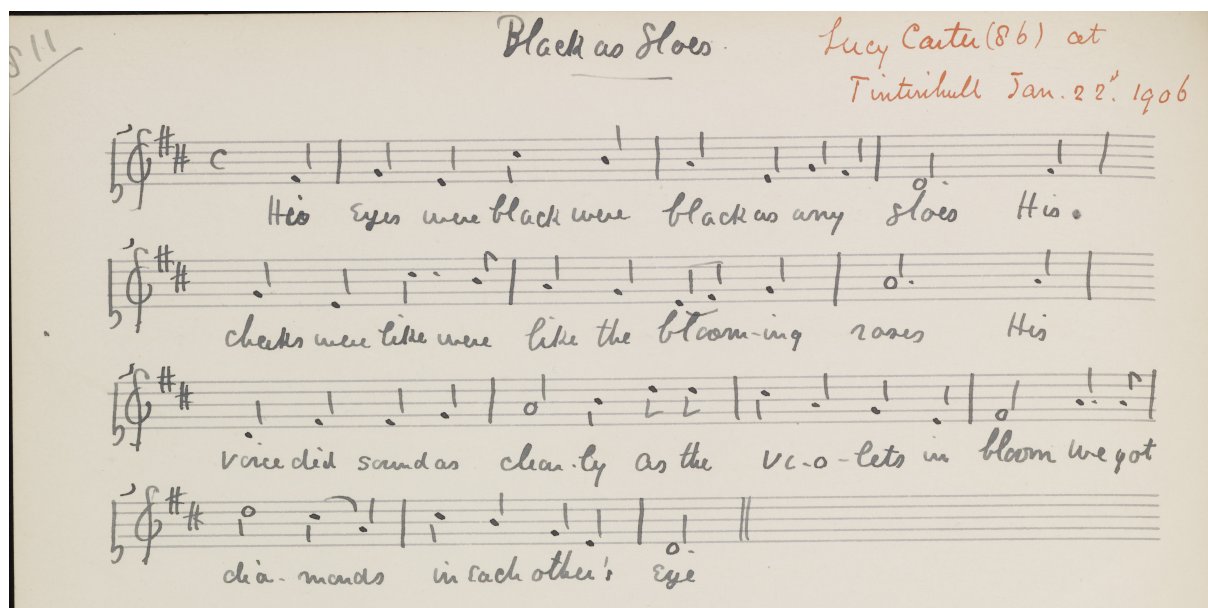 811
Black as Sloes.
Lucy Carter (86) at
Tintinhull Jan. 22d. 1906
His Eyes were black were black as any sloes His
cheeks were like were like the bloom-ing roses His
voice did sound as clear-ly as the vi-o-lets in bloom we got
dia-monds in each other's Eye